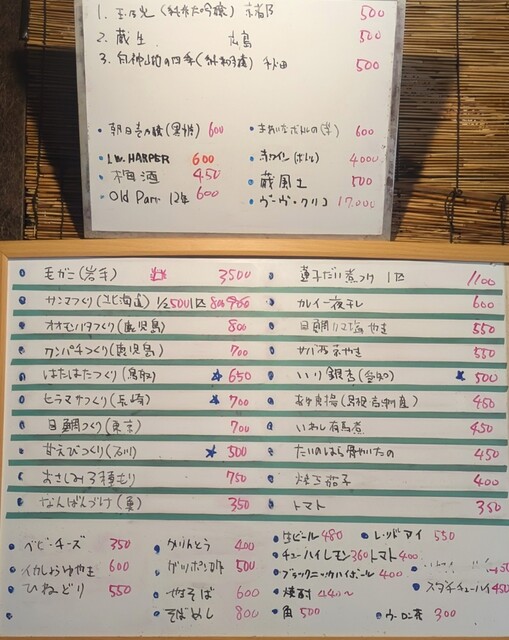 1. 玉乃光 (純米大吟醸) 京都 500
2. 蔵生 広島 500
3. 白神山地の四季 秋田 500
朝日 (黒糖) 600
I.W. HARPER 600
梅酒 450
Old Parr 12年 600
600
赤ワイン (ボトル) 4000
蔵風土 500
ヴーヴ・クリコ 17,000
毛ガニ (岩手) 3500
サンマつくり (北海道) 1/2 500 1匹
オオモンハタつくり (鹿児島) 800
カンパチつくり (鹿児島) 700
はたはたつくり (鳥取) ★ 650
ヒラマサつくり (長崎) ★ 700
目鯛つくり (東京) 700
甘えびつくり (石川) ★ 500
おさしみ3種もり 750
なんばんづけ (魚) 350
蓮子だい煮つけ 1匹 1100
カレイ一夜干し 600
目鯛 塩やき 550
サバ西京やき 550
いり銀杏 (愛知) ★ 500
450
いわし有馬煮 450
たいのはら骨やいたの 450
焼き茄子 400
トマト 350
ベビーチーズ 350
イカしおゆやき 600
ひねどり 550
かりんとう 400
500
やきそば 600
そばめし 800
生ビール 480
レッドアイ 550
チューハイレモン 360 トマト 400
ブラックニッカハイボール 400
焼酎 440~
スダチチューハイ 450
角 500
ウーロン茶 300